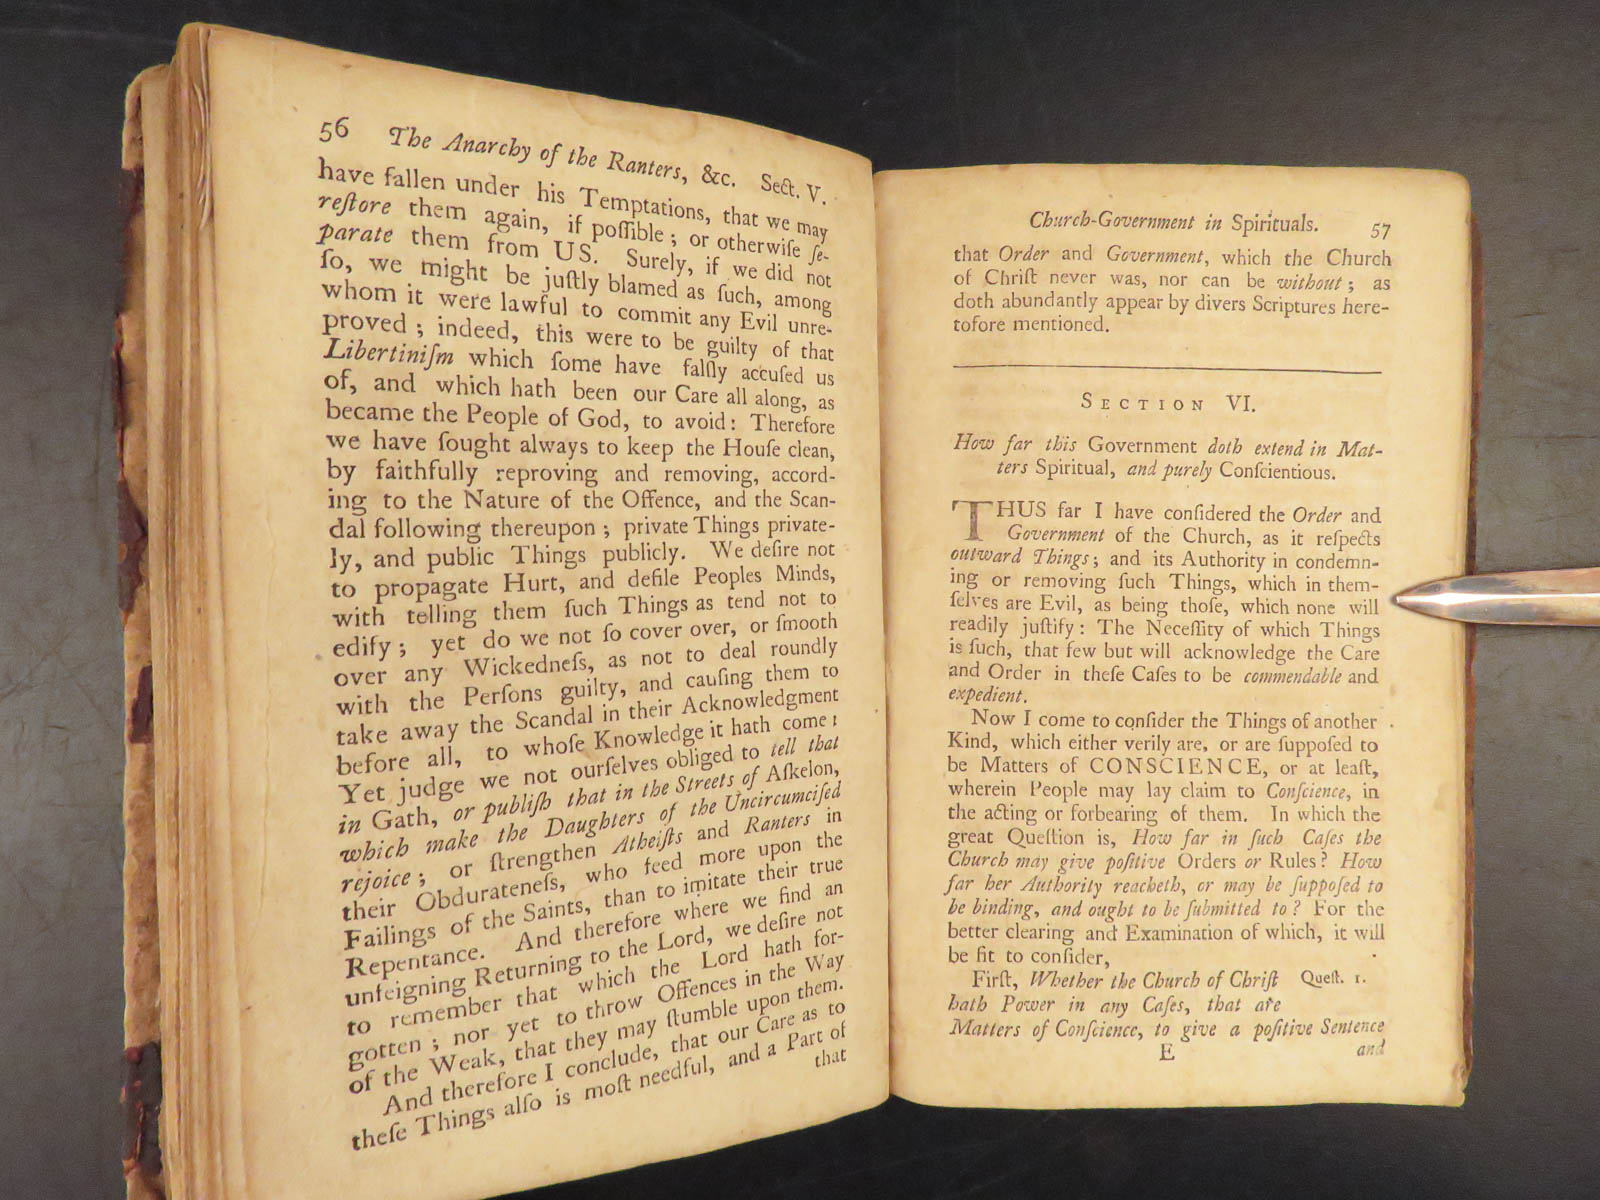 56 The Anarchy of the Ranters, &c. Sect. V.
have fallen under his Temptations, that we may
reſtore them again, if poſſible; or otherwiſe ſe-
parate them from US. Surely, if we did not
ſo, we might be juſtly blamed as ſuch, among
whom it were lawful to commit any Evil unre-
proved; indeed, this were to be guilty of that
Libertiniſm which ſome have falſly accuſed us
of, and which hath been our Care all along, as
became the People of God, to avoid: Therefore
we have ſought always to keep the Houſe clean,
by faithfully reproving and removing, accord-
ing to the Nature of the Offence, and the Scan-
dal following thereupon; private Things private-
ly, and public Things publicly. We deſire not
to propagate Hurt, and defile Peoples Minds,
with telling them ſuch Things as tend not to
edify; yet do we not ſo cover over, or ſmooth
over any Wickedneſs, as not to deal roundly
with the Perſons guilty, and cauſing them to
take away the Scandal in their Acknowledgment
before all, to whoſe Knowledge it hath come:
Yet judge we not ourſelves obliged to tell that
in Gath, or publiſh that in the Streets of Aſkelon,
which make the Daughters of the Uncircumciſed
rejoice; or ſtrengthen Atheiſts and Ranters in
their Obdurateneſs, who feed more upon the
Failings of the Saints, than to imitate their true
Repentance. And therefore where we find an
unfeigning Returning to the Lord, we deſire not
to remember that which the Lord hath for-
gotten; nor yet to throw Offences in the Way
of the Weak, that they may ſtumble upon them.
And therefore I conclude, that our Care as to
theſe Things alſo is moſt needful, and a Part of
that
Church-Government in Spirituals. 57
that Order and Government, which the Church
of Chriſt never was, nor can be without; as
doth abundantly appear by divers Scriptures here-
tofore mentioned.
SECTION VI.
How far this Government doth extend in Mat-
ters Spiritual, and purely Conſcientious.
THUS far I have conſidered the Order and
Government of the Church, as it reſpects
outward Things; and its Authority in condemn-
ing or removing ſuch Things, which in them-
ſelves are Evil, as being thoſe, which none will
readily juſtify: The Neceſſity of which Things
is ſuch, that few but will acknowledge the Care
and Order in theſe Caſes to be commendable and
expedient.
Now I come to conſider the Things of another
Kind, which either verily are, or are ſuppoſed to
be Matters of CONSCIENCE, or at leaſt,
wherein People may lay claim to Conſcience, in
the acting or forbearing of them. In which the
great Queſtion is, How far in ſuch Caſes the
Church may give poſitive Orders or Rules? How
far her Authority reacheth, or may be ſuppoſed to
be binding, and ought to be ſubmitted to? For the
better clearing and Examination of which, it will
be fit to conſider,
Firſt, Whether the Church of Chriſt Queſt. 1.
hath Power in any Caſes, that are
Matters of Conſcience, to give a poſitive Sentence
E and